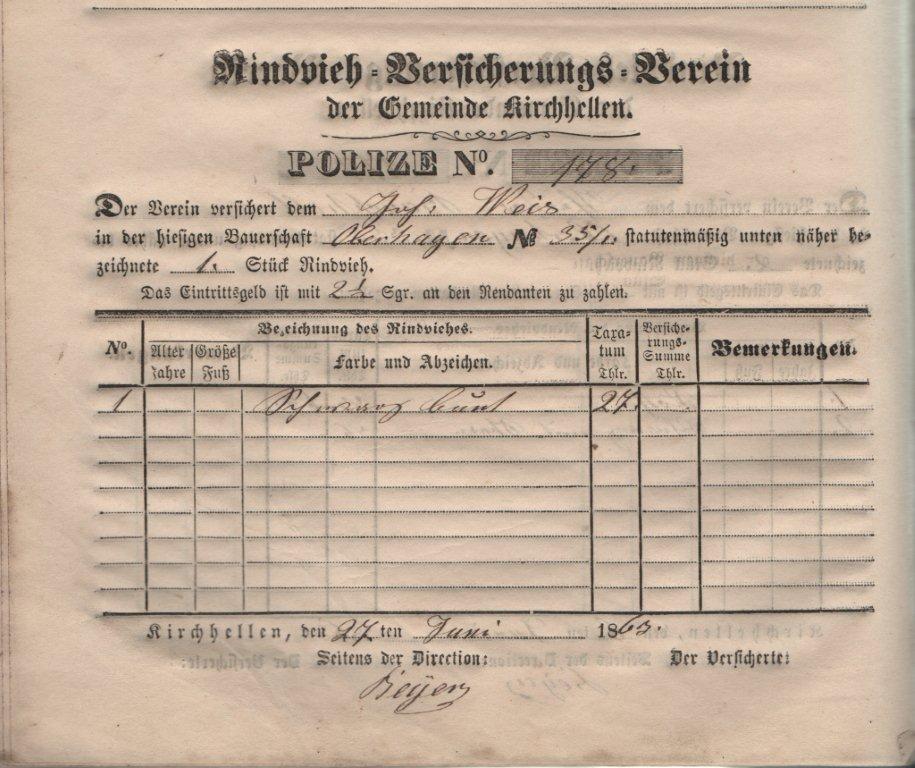 Rindvieh-Versicherungs-Verein
der Gemeinde Kirchhellen.
POLIZE No. 178.
Der Verein versichert dem Joh. Weis
in der hiesigen Bauerschaft Overhagen № 35/1. statutenmäßig unten näher be-
zeichnete 1. Stück Rindvieh.
Das Eintrittsgeld ist mit 2½ Sgr. an den Rendanten zu zahlen.
No. Bezeichnung des Rindviehes. Taxatum Thlr. Versicherungs-Summe Thlr. Bemerkungen.
Alter Jahre Größe Fuß Farbe und Abzeichen.
1 Schwarz bunt 27.
Kirchhellen, den 27ten Juni 1863.
Seitens der Direction: Der Versicherte: